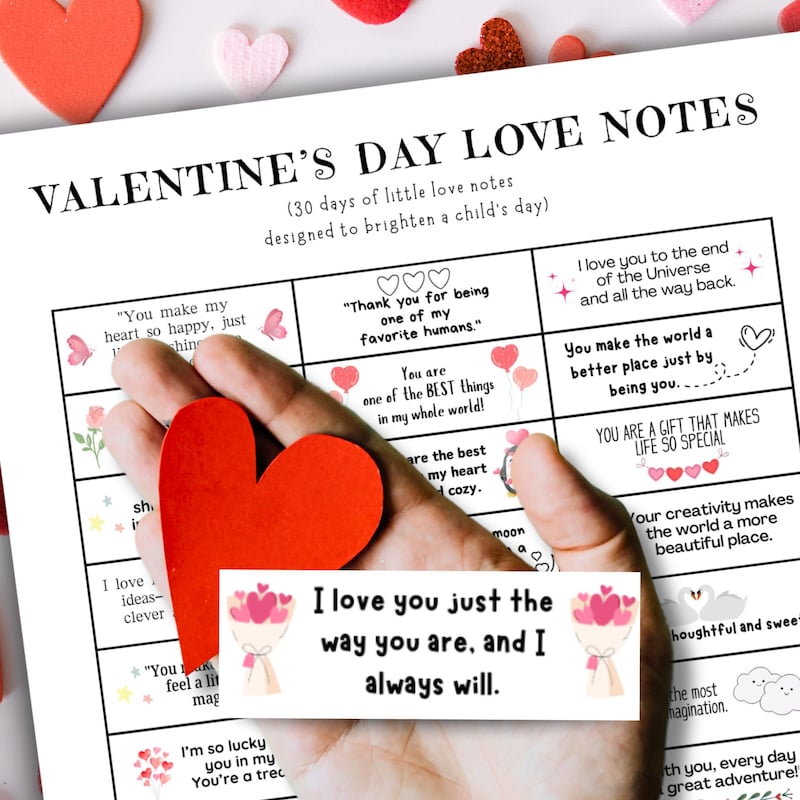 VALENTINE'S DAY LOVE NOTES
(30 days of little love notes
designed to brighten a child's day)
"You make my
heart so happy, just
"Thank you for being
one of my
favorite humans."
I love you to the end
of the Universe
and all the way back.
You are
one of the BEST things
in my whole world!
You make the world a
better place just by
being you.
are the best
my heart
cozy.
YOU ARE A GIFT THAT MAKES
LIFE SO SPECIAL
moon
a
Your creativity makes
the world a more
beautiful place.
I love
ideas–
clever
thoughtful and sweet
"You
feel a
the most
I'm so lucky
you in my
You're a
you, every day
great adventure!"
I love you just the
way you are, and I
always will.